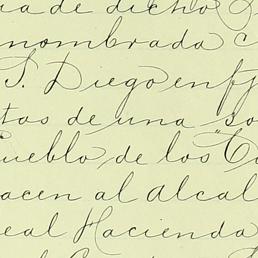 ia de dicho
nombrada
S. Diego en ff
tos de una so
Pueblo de los
acen al Alcal
eal Hacienda